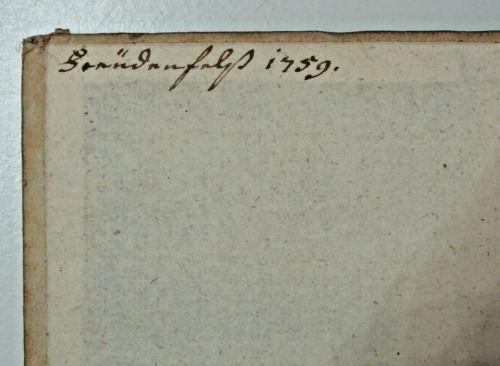 Freüdenfelß 1759.